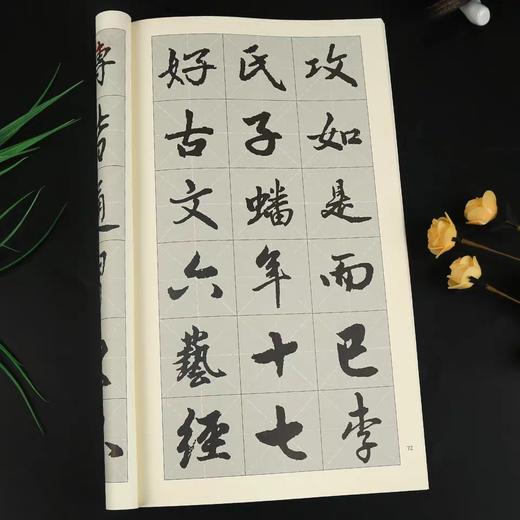 攻如是而已李
氏子蟠年十七
好古文六藝經
傳皆通習
72